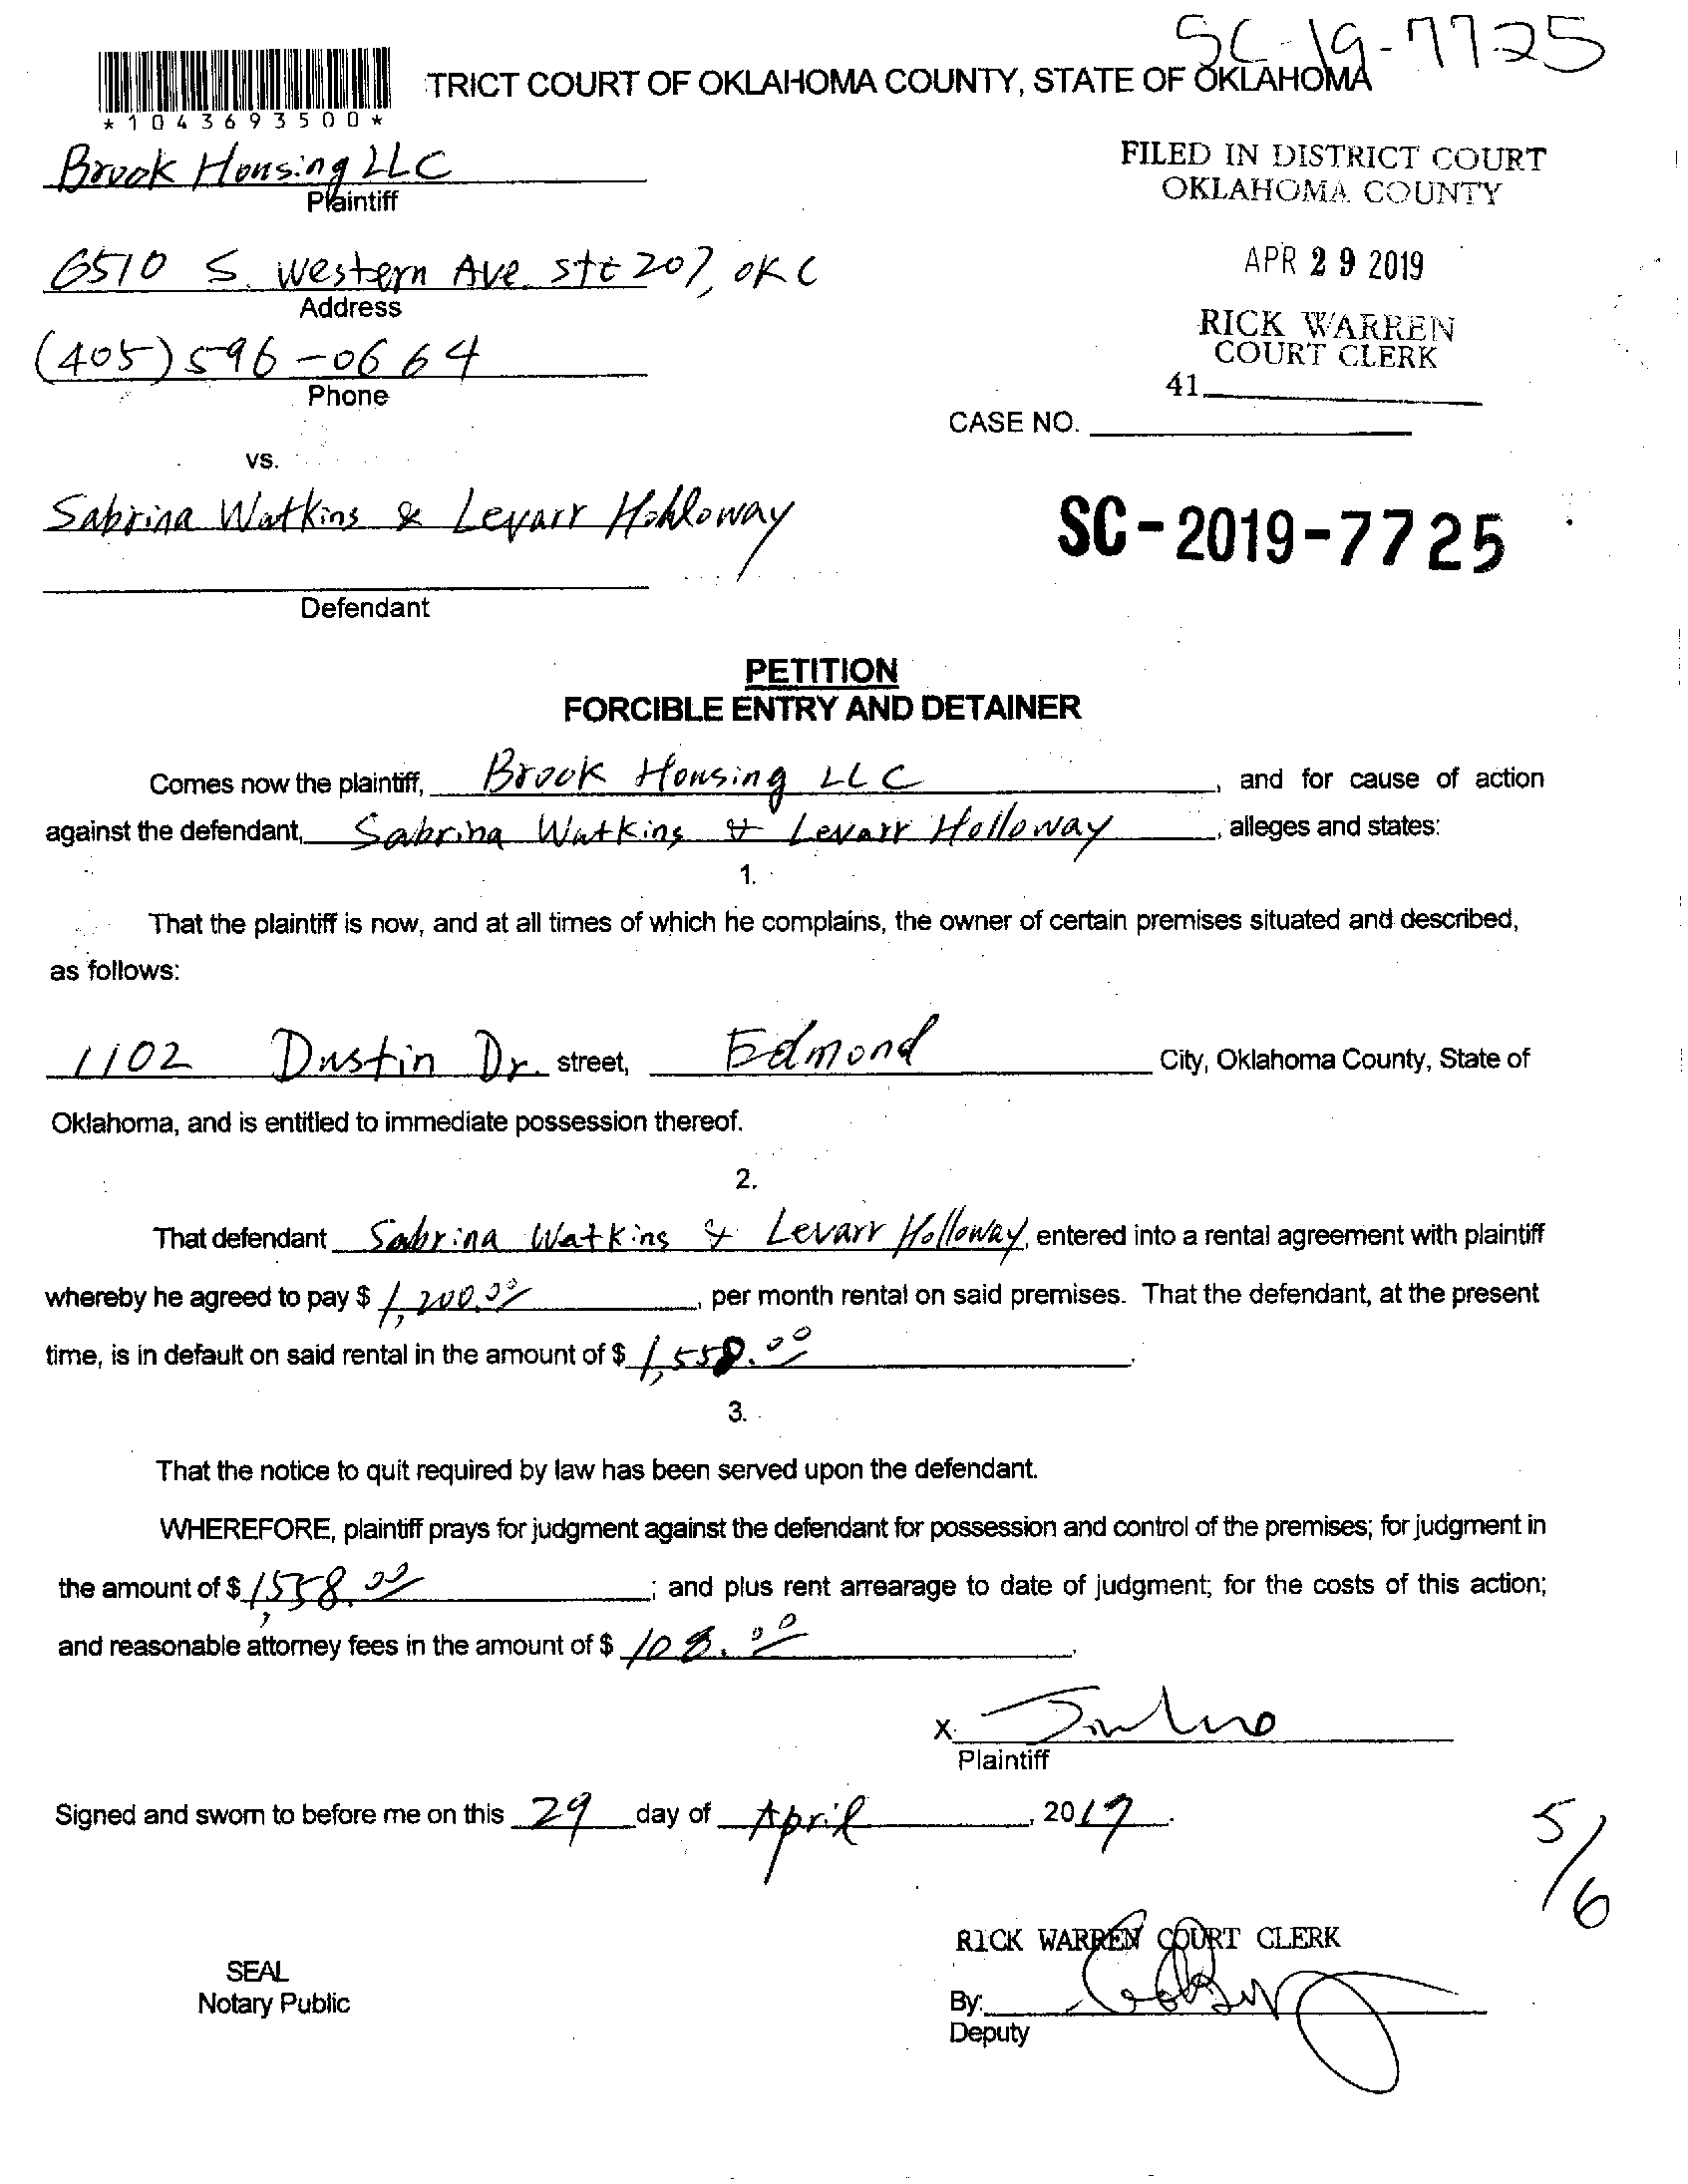 SC-19-7725
TRICT COURT OF OKLAHOMA COUNTY, STATE OF OKLAHOMA
*1043693500*
Brook Housing LLC
Plaintiff
FILED IN DISTRICT COURT
OKLAHOMA COUNTY
6510 S. Western Ave Ste 207, OKC
Address
APR 29 2019
(405) 596-0664
Phone
RICK WARREN
COURT CLERK
41
CASE NO.
vs.
Sabrina Watkins & Levarr Holloway
SC-2019-7725
Defendant
PETITION
FORCIBLE ENTRY AND DETAINER
Comes now the plaintiff, Brook Housing LLC, and for cause of action
against the defendant, Sabrina Watkins & Levarr Holloway, alleges and states:
1.
That the plaintiff is now, and at all times of which he complains, the owner of certain premises situated and described,
as follows:
1102 Dustin Dr. street, Edmond City, Oklahoma County, State of
Oklahoma, and is entitled to immediate possession thereof.
2.
That defendant Sabrina Watkins & Levarr Holloway, entered into a rental agreement with plaintiff
whereby he agreed to pay $ 1,200.00, per month rental on said premises. That the defendant, at the present
time, is in default on said rental in the amount of $ 1,558.00.
3.
That the notice to quit required by law has been served upon the defendant.
WHEREFORE, plaintiff prays for judgment against the defendant for possession and control of the premises; for judgment in
the amount of $ 1,558.00; and plus rent arrearage to date of judgment; for the costs of this action;
and reasonable attorney fees in the amount of $ 108.00.
X
Plaintiff
Signed and sworn to before me on this 29 day of April, 2019.
5/6
RICK WARREN COURT CLERK
SEAL
Notary Public
By:
Deputy